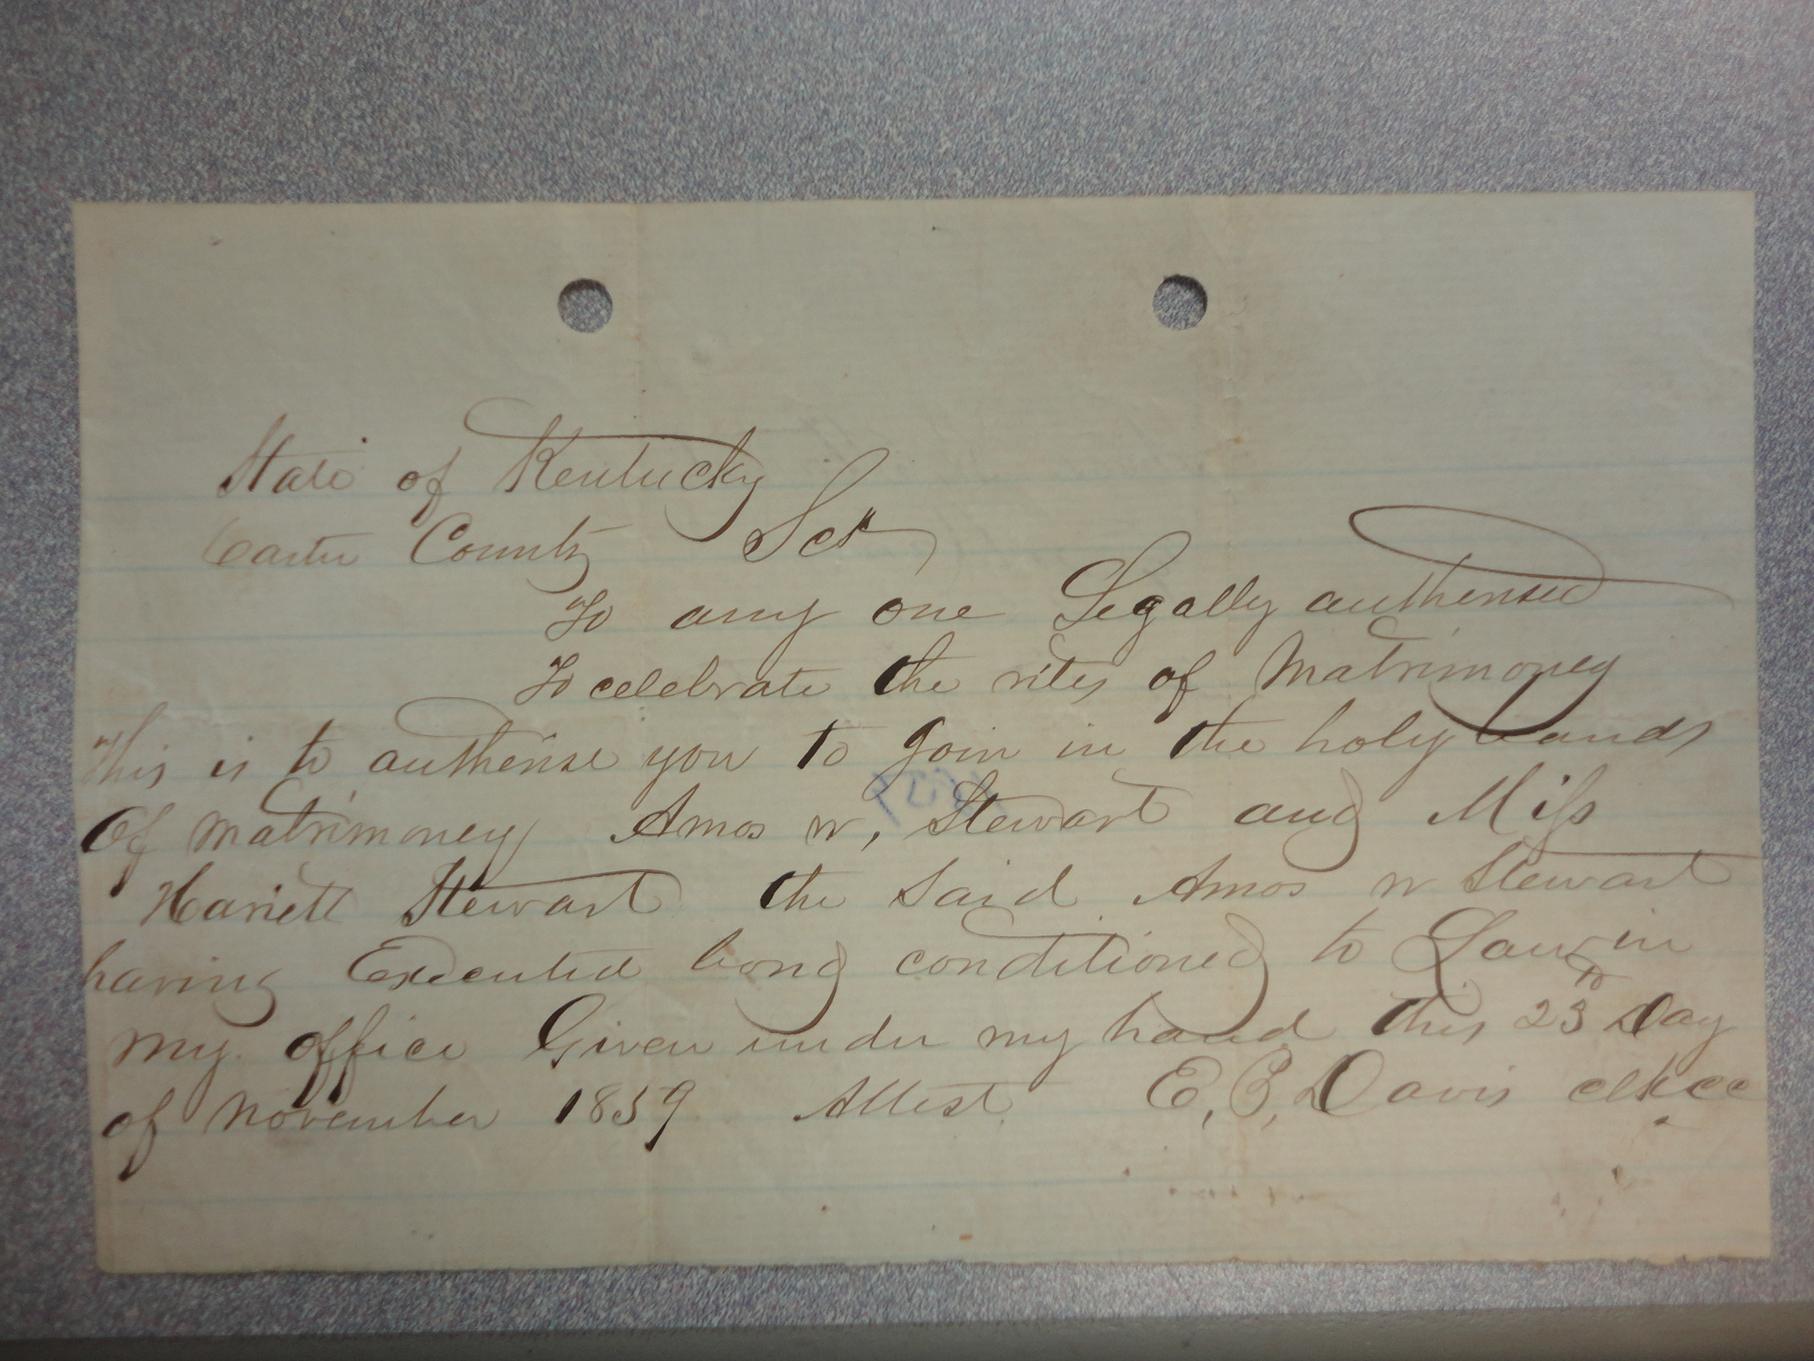 State of Kentucky
Carter County Sct
To any one Legally authensed
To celebrate the rites of Matrimoney
This is to authense you to Join in the holy bands
Of Matrimoney Amos W, Stewart and Miss
Hariett Stewart the said Amos W Stewart
having Executed bond conditioned to Law in
my office Given under my hand this 23rd Day
of November 1859 Attest E, B, Davis clkcc